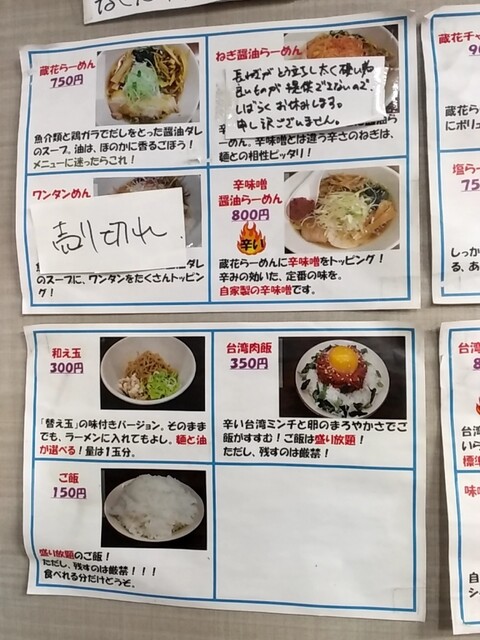 蔵花らーめん
750円
魚介類と鶏ガラでだしをとった醤油ダレ
のスープ。油は、ほのかに香るごぼう！
メニューに迷ったらこれ！
ねぎ醤油らーめん
しばらくお休みします。
申し訳ございません。
らーめん。辛味噌とは違う辛さのねぎは、
麺との相性ピッタリ！
ワンタンめん
売り切れ
ダレ
のスープに、ワンタンをたくさんトッピン
グ！
辛味噌
醤油らーめん
800円
辛い
蔵花らーめんに辛味噌をトッピング！
辛みの効いた、定番の味を。
自家製の辛味噌です。
和え玉
300円
「替え玉」の味付きバージョン。そのまま
でも、ラーメンに入れてもよし。麺と油
が選べる！量は1玉分。
台湾肉飯
350円
辛い台湾ミンチと卵のまろやかさでご
飯がすすむ！ご飯は盛り放題！
ただし、残すのは厳禁！
ご飯
150円
盛り放題のご飯！
ただし、残すのは厳禁！！！
食べれる分だけどうぞ。
蔵花チャ
蔵花ら
にボリュ
塩らー
75
しっか
る、あ
台湾
台湾
いら
標準
味噌
自
シ